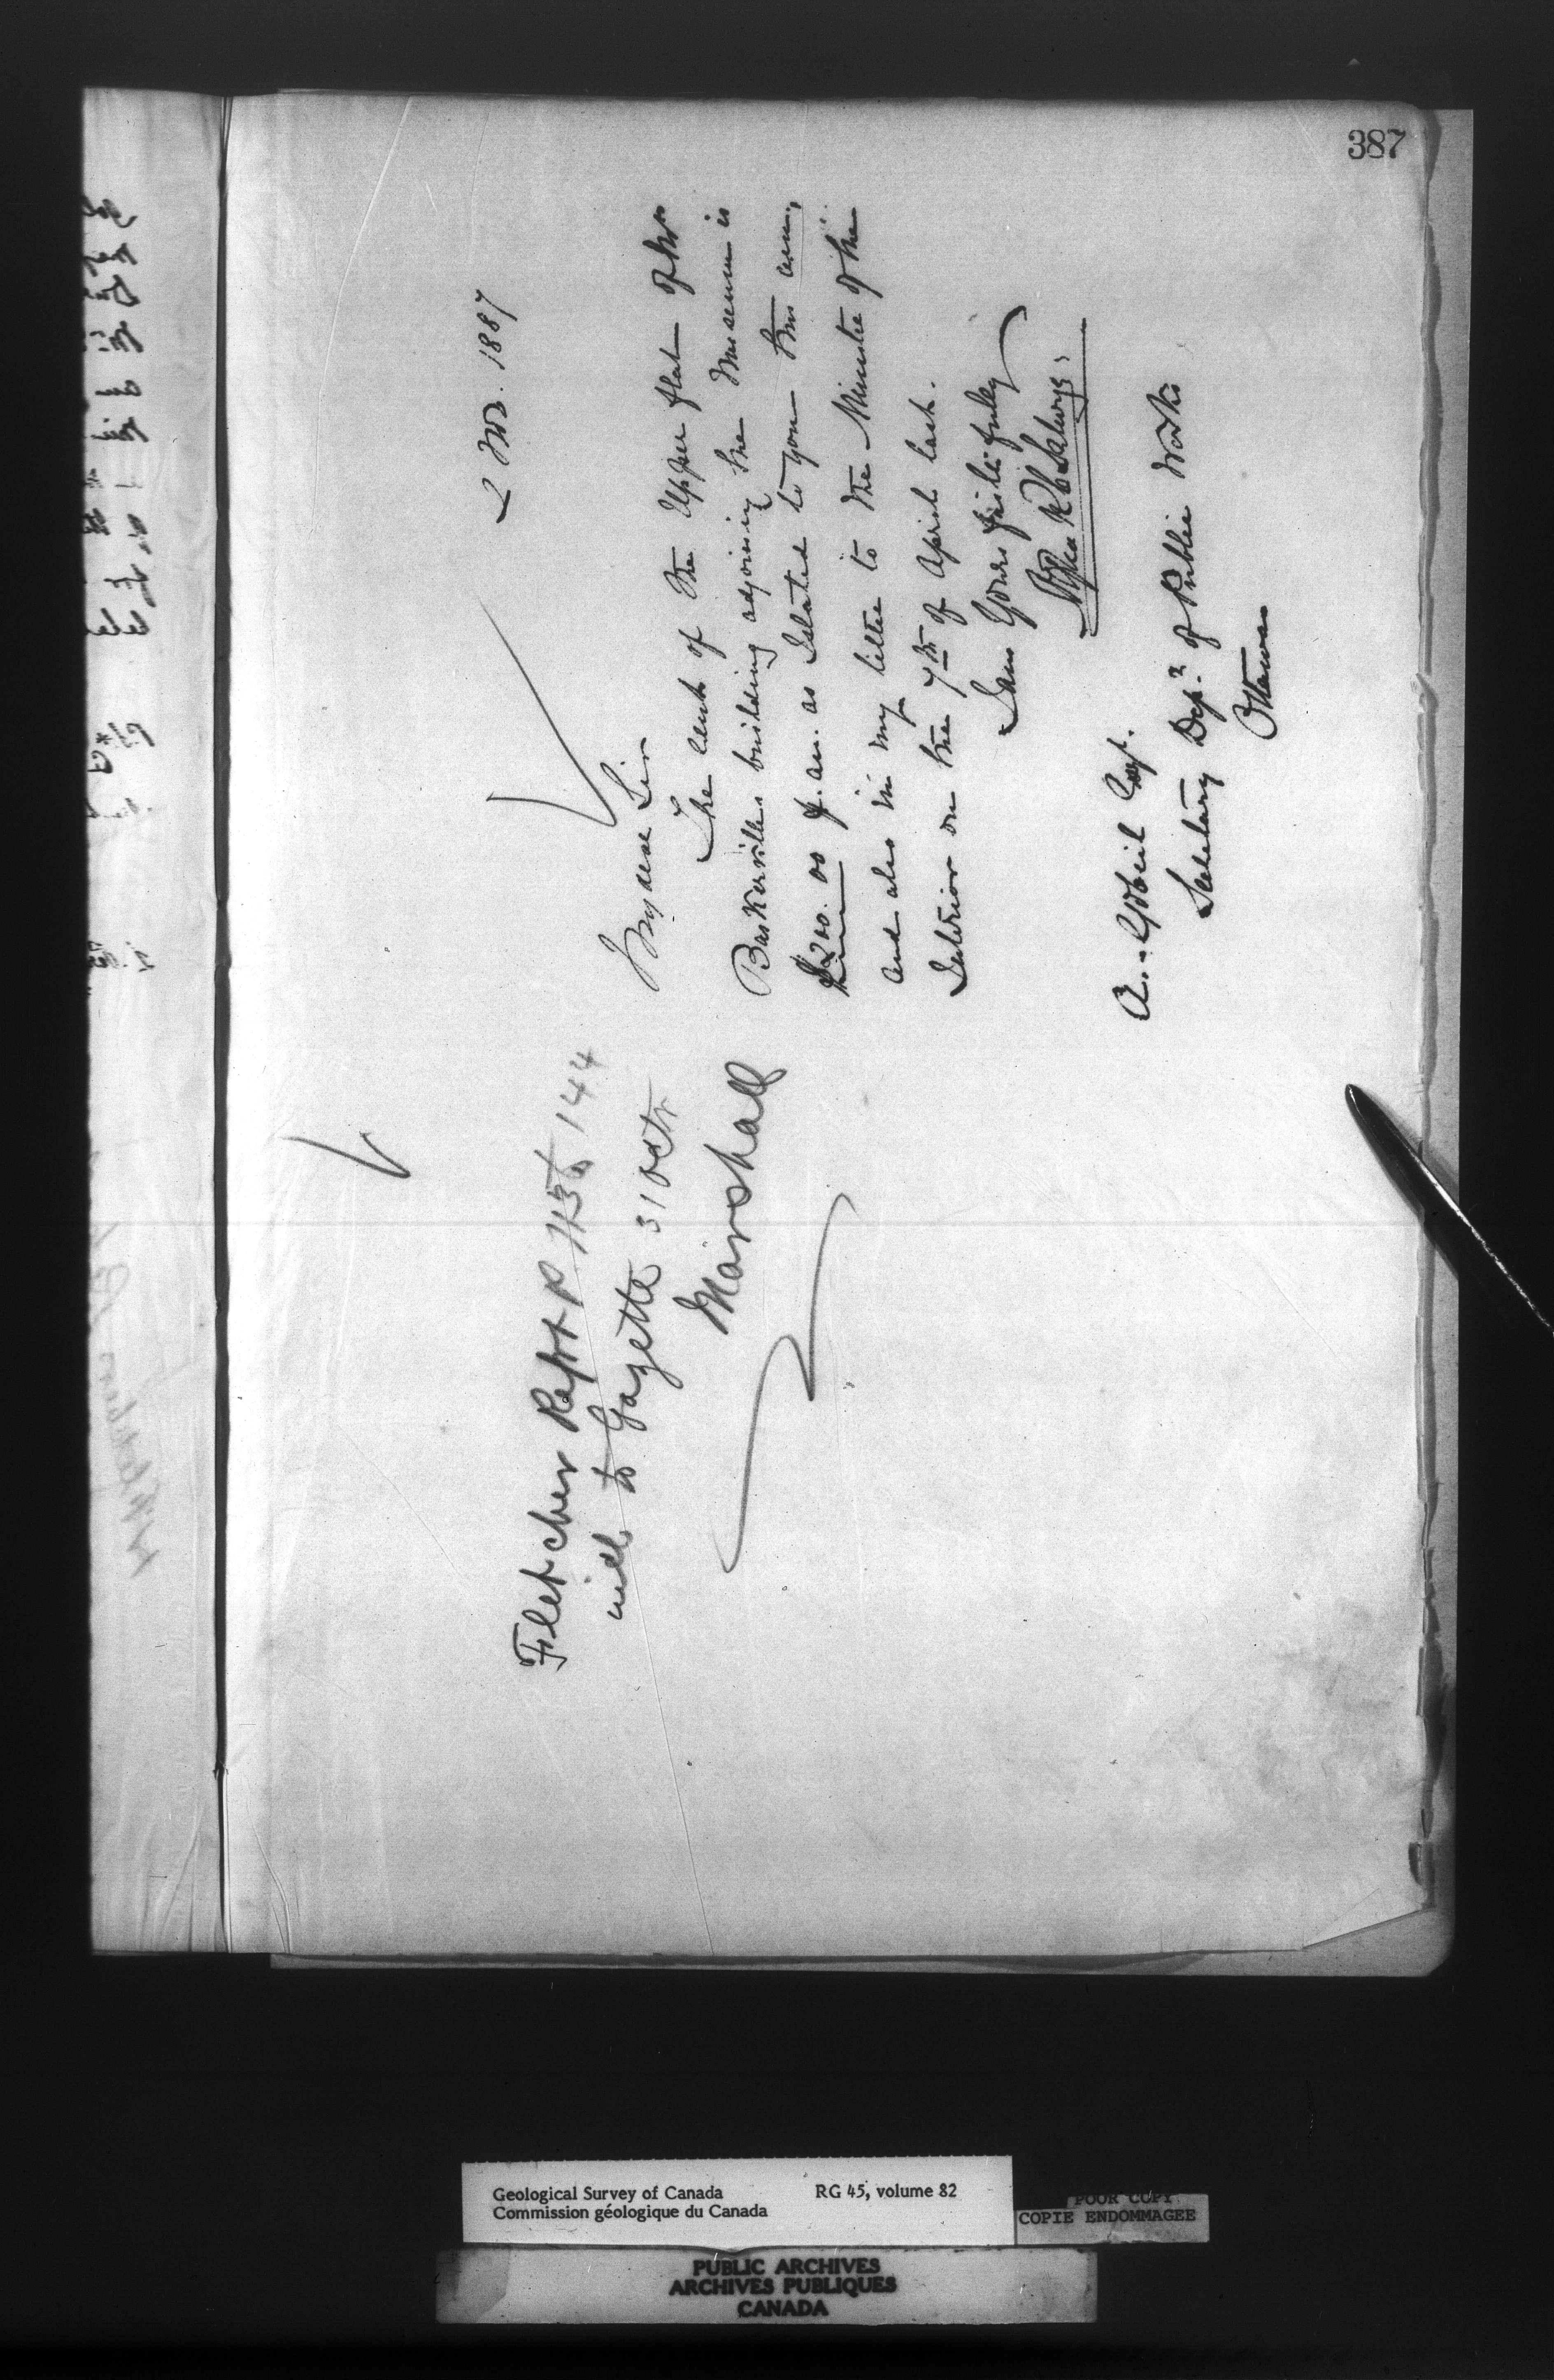 387
2 Nov. 1887
My dear Sir
The rent of the upper flat of the
Baskerville building adjoining the Museum is
$200.00 p. an. as stated to you this a.m.,
and also in my letter to the Minister of the
Interior on the 7th of April last.
I am Yours faithfully
A. Gobeil Esq.
Secretary Dep.t of Public Works
Ottawa
Fletcher Rept P 144
to Gazette 31 Octr
Marshall
Geological Survey of Canada RG 45, volume 82
Commission géologique du Canada
POOR COPY
COPIE ENDOMMAGEE
PUBLIC ARCHIVES
ARCHIVES PUBLIQUES
CANADA